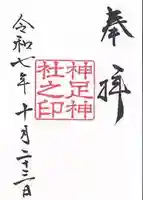 奉拝
神足神
社之印
令和七年十月二十二日